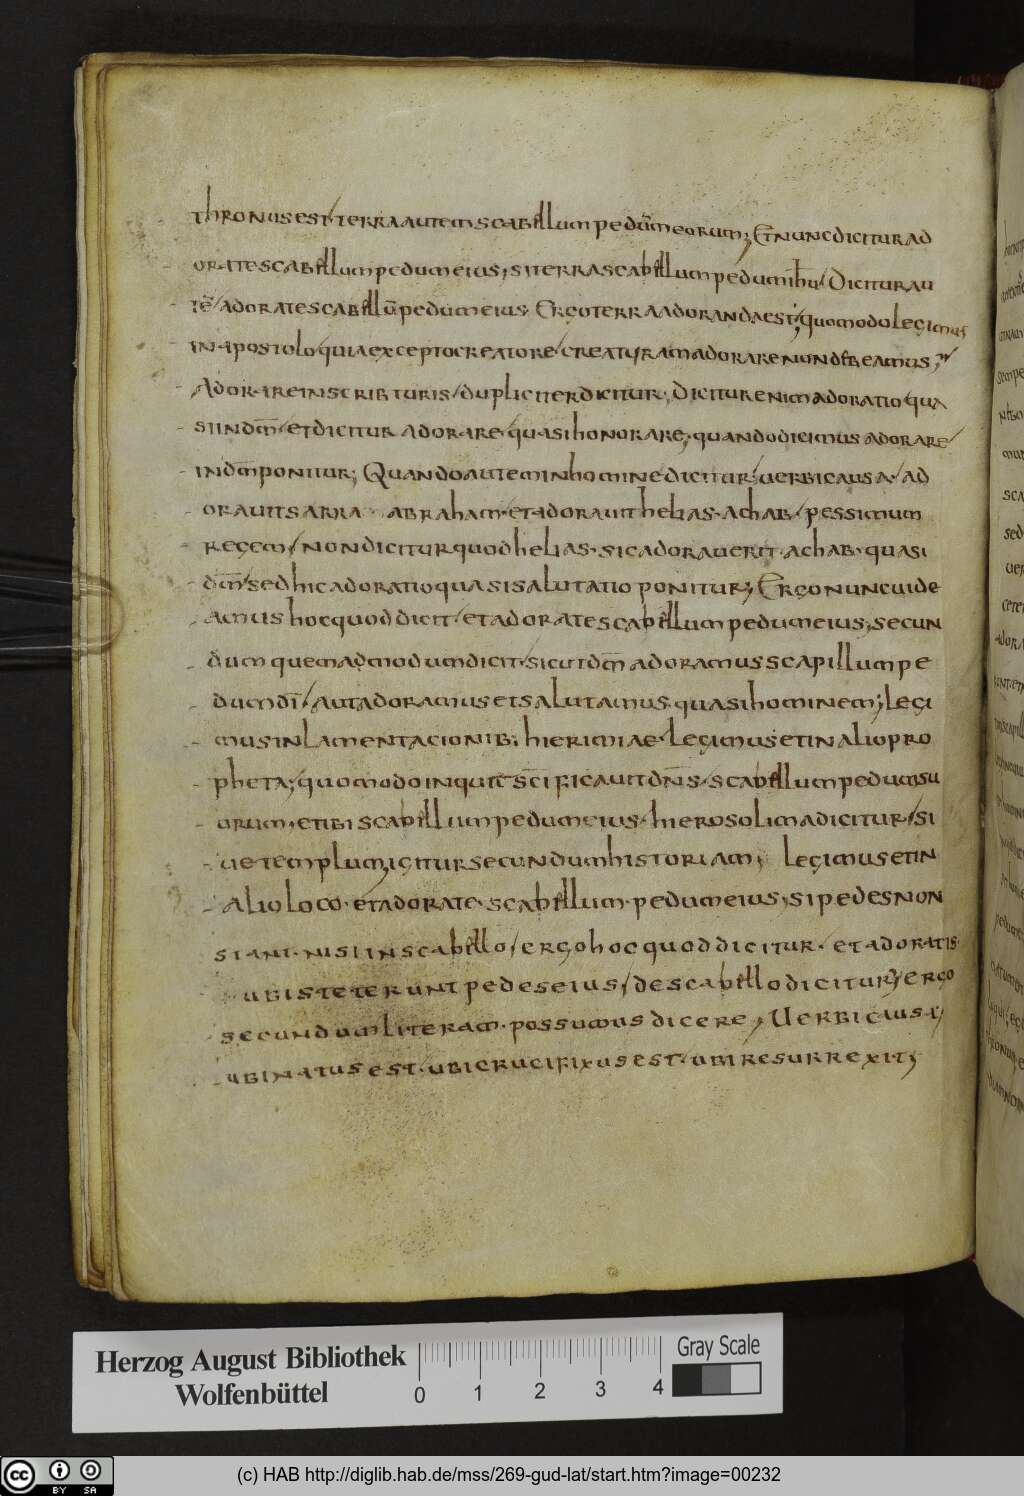 thronus est / terra autem scabillum pedũ meorum; Et nunc dicitur ad
orate scabillum pedum eius, si terra scabillum pedum ihũ / Dicitur au
tẽ / adorate scabillũ pedum eius. Ergo terra adoranda est; quomodo legimus
in apostolo quia excepto creatore / creaturam adorare non debeamus;
Adorare in scribturis / dupliciter dicitur. Dicitur enim adoratio qua
si in dm̃ / et dicitur adorare quasi honorare; quando dicimus adorare /
in dm̃ ponitur; Quando autem in homine dicitur / uerbi causa / ad
orauit sarra abraham et adorauit helias achab / pessimum
regem / non dicitur quod helias sic adorauerit achab quasi
dm̃ sed hic adoratio quasi salutatio ponitur; Ergo nunc uide
amus hoc quod dicit / et adorate scabillum pedum eius, secun
dum quemadmodum dicit sicut dm̃ adoramus scapillum pe
dum dĩ / aut adoramus et salutamus quasi hominem; legi
mus in lamentacionib. hierimiae legimus et in alio pro
pheta; quomodo inquit sc̃ificauit dñs scabillum pedum su
orum, et ibi scabillum pedum eius hierosolima dicitur / si
ue templum, igitur secundum historiam; legimus et in
alio loco et adorate scabillum pedum eius, si pedes non
stant nisi in scabillo / ergo hoc quod dicitur et adoratis
ubi steterunt pedes eius / de scabillo dicitur; ergo
secundum literam possumus dicere; Uerbi causa /
ubi natus est ubi crucifixus est ubi resurrexit;
Herzog August Bibliothek
Wolfenbüttel
0 1 2 3 4
Gray Scale
cc BY SA
(c) HAB http://diglib.hab.de/mss/269-gud-lat/start.htm?image=00232